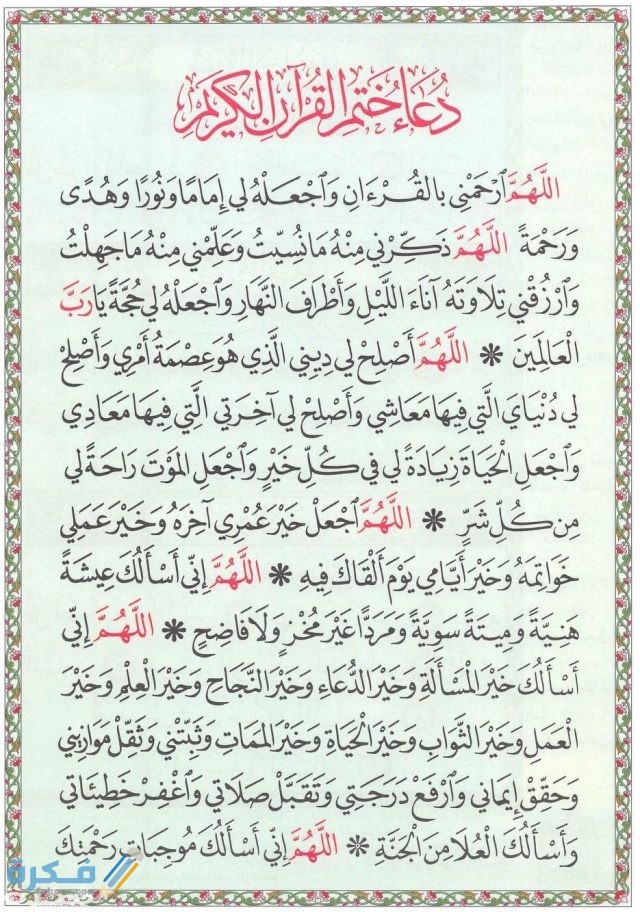 دُعَاءُ خَتْمِ القُرْآنِ الكَرِيمِ
اللَّهُمَّ ٱرْحَمْنِي بالقُرْءَانِ وَٱجْعَلْهُ لِي إِمَامًا وَنُورًا وَهُدًى
وَرَحْمَةً اللَّهُمَّ ذَكِّرْنِي مِنْهُ مَا نُسِّيتُ وَعَلِّمْنِي مِنْهُ مَا جَهِلْتُ
وَٱرْزُقْنِي تِلَاوَتَهُ آنَاءَ اللَّيْلِ وَأَطْرَافَ النَّهَارِ وَٱجْعَلْهُ لِي حُجَّةً يَا رَبَّ
الْعَالَمِينَ * اللَّهُمَّ أَصْلِحْ لِي دِينِي الَّذِي هُوَ عِصْمَةُ أَمْرِي وَأَصْلِحْ
لِي دُنْيَايَ الَّتِي فِيهَا مَعَاشِي وَأَصْلِحْ لِي آخِرَتِي الَّتِي فِيهَا مَعَادِي
وَٱجْعَلِ الْحَيَاةَ زِيَادَةً لِي فِي كُلِّ خَيْرٍ وَٱجْعَلِ الْمَوْتَ رَاحَةً لِي
مِن كُلِّ شَرٍّ * اللَّهُمَّ ٱجْعَلْ خَيْرَ عُمْرِي آخِرَهُ وَخَيْرَ عَمَلِي
خَوَاتِمَهُ وَخَيْرَ أَيَّامِي يَوْمَ أَلْقَاكَ فِيهِ * اللَّهُمَّ إِنِّي أَسْأَلُكَ عِيشَةً
هَنِيَّةً وَمِيتَةً سَوِيَّةً وَمَرَدًّا غَيْرَ مُخْزٍ وَلَا فَاضِحٍ * اللَّهُمَّ إِنِّي
أَسْأَلُكَ خَيْرَ الْمَسْأَلَةِ وَخَيْرَ الدُّعَاءِ وَخَيْرَ النَّجَاحِ وَخَيْرَ الْعِلْمِ وَخَيْرَ
الْعَمَلِ وَخَيْرَ الثَّوَابِ وَخَيْرَ الْحَيَاةِ وَخَيْرَ الْمَمَاتِ وَثَبِّتْنِي وَثَقِّلْ مَوَازِينِي
وَحَقِّقْ إِيمَانِي وَٱرْفَعْ دَرَجَتِي وَتَقَبَّلْ صَلَاتِي وَٱغْفِرْ خَطِيئَاتِي
وَأَسْأَلُكَ الْعُلَا مِنَ الْجَنَّةِ * اللَّهُمَّ إِنِّي أَسْأَلُكَ مُوجِبَاتِ رَحْمَتِكَ
فكرة